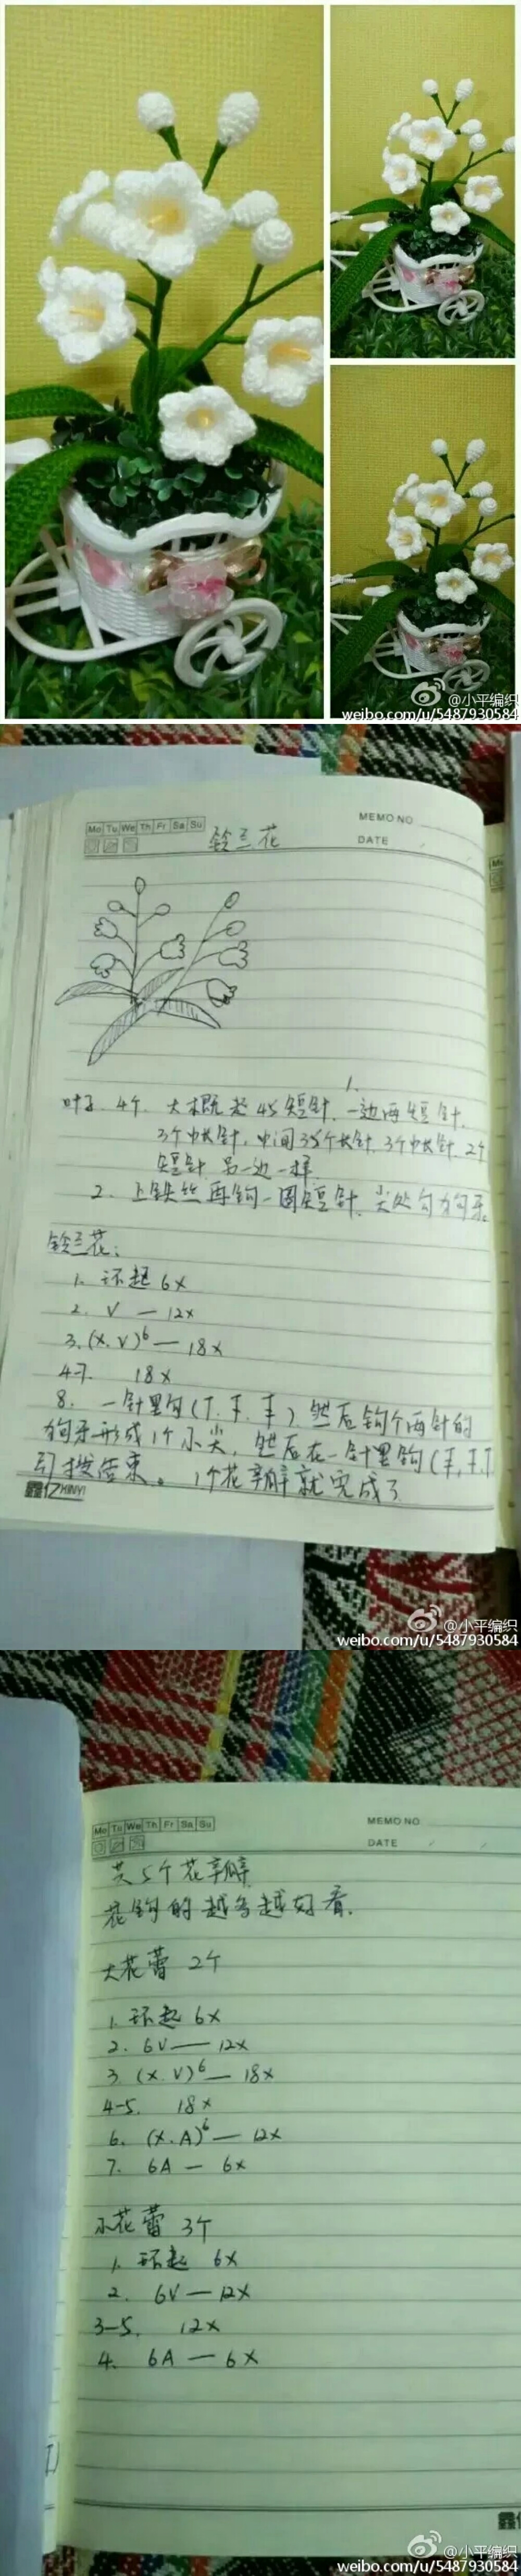 @小平编织
weibo.com/u/5487930584
Mo Tu We Th Fr Sa Su
MEMO NO
DATE
铃兰花
1.
叶子 4个 大概起45短针 一边两短针
3个中长针, 中间35个长针 3个中长针 2个
短针 另一边一样
2. 上铁丝再钩一圈短针 尖处勾狗牙。
铃兰花:
1. 环起 6X
2. V — 12X
3. (X.V)6 — 18X
4-7. 18X
8. 一针里勾(T. 干. 丰) 然后钩个两针的
狗牙形成1个小尖, 然后在一针里钩(丰, 干. T
引拔结束。 1个花瓣就完成了
鑫亿 XINYI
@小平编织
weibo.com/u/5487930584
Mo Tu We Th Fr Sa Su
MEMO NO
DATE
共5个花瓣
花钩的越多越好看.
大花蕾 2个
1. 环起 6X
2. 6V — 12X
3. (X.V)6 — 18X
4-5. 18X
6. (X.A)6 — 12X
7. 6A — 6X
小花蕾 3个
1. 环起 6X
2. 6V — 12X
3-5. 12X
4. 6A — 6X
鑫亿
@小平编织
weibo.com/u/5487930584